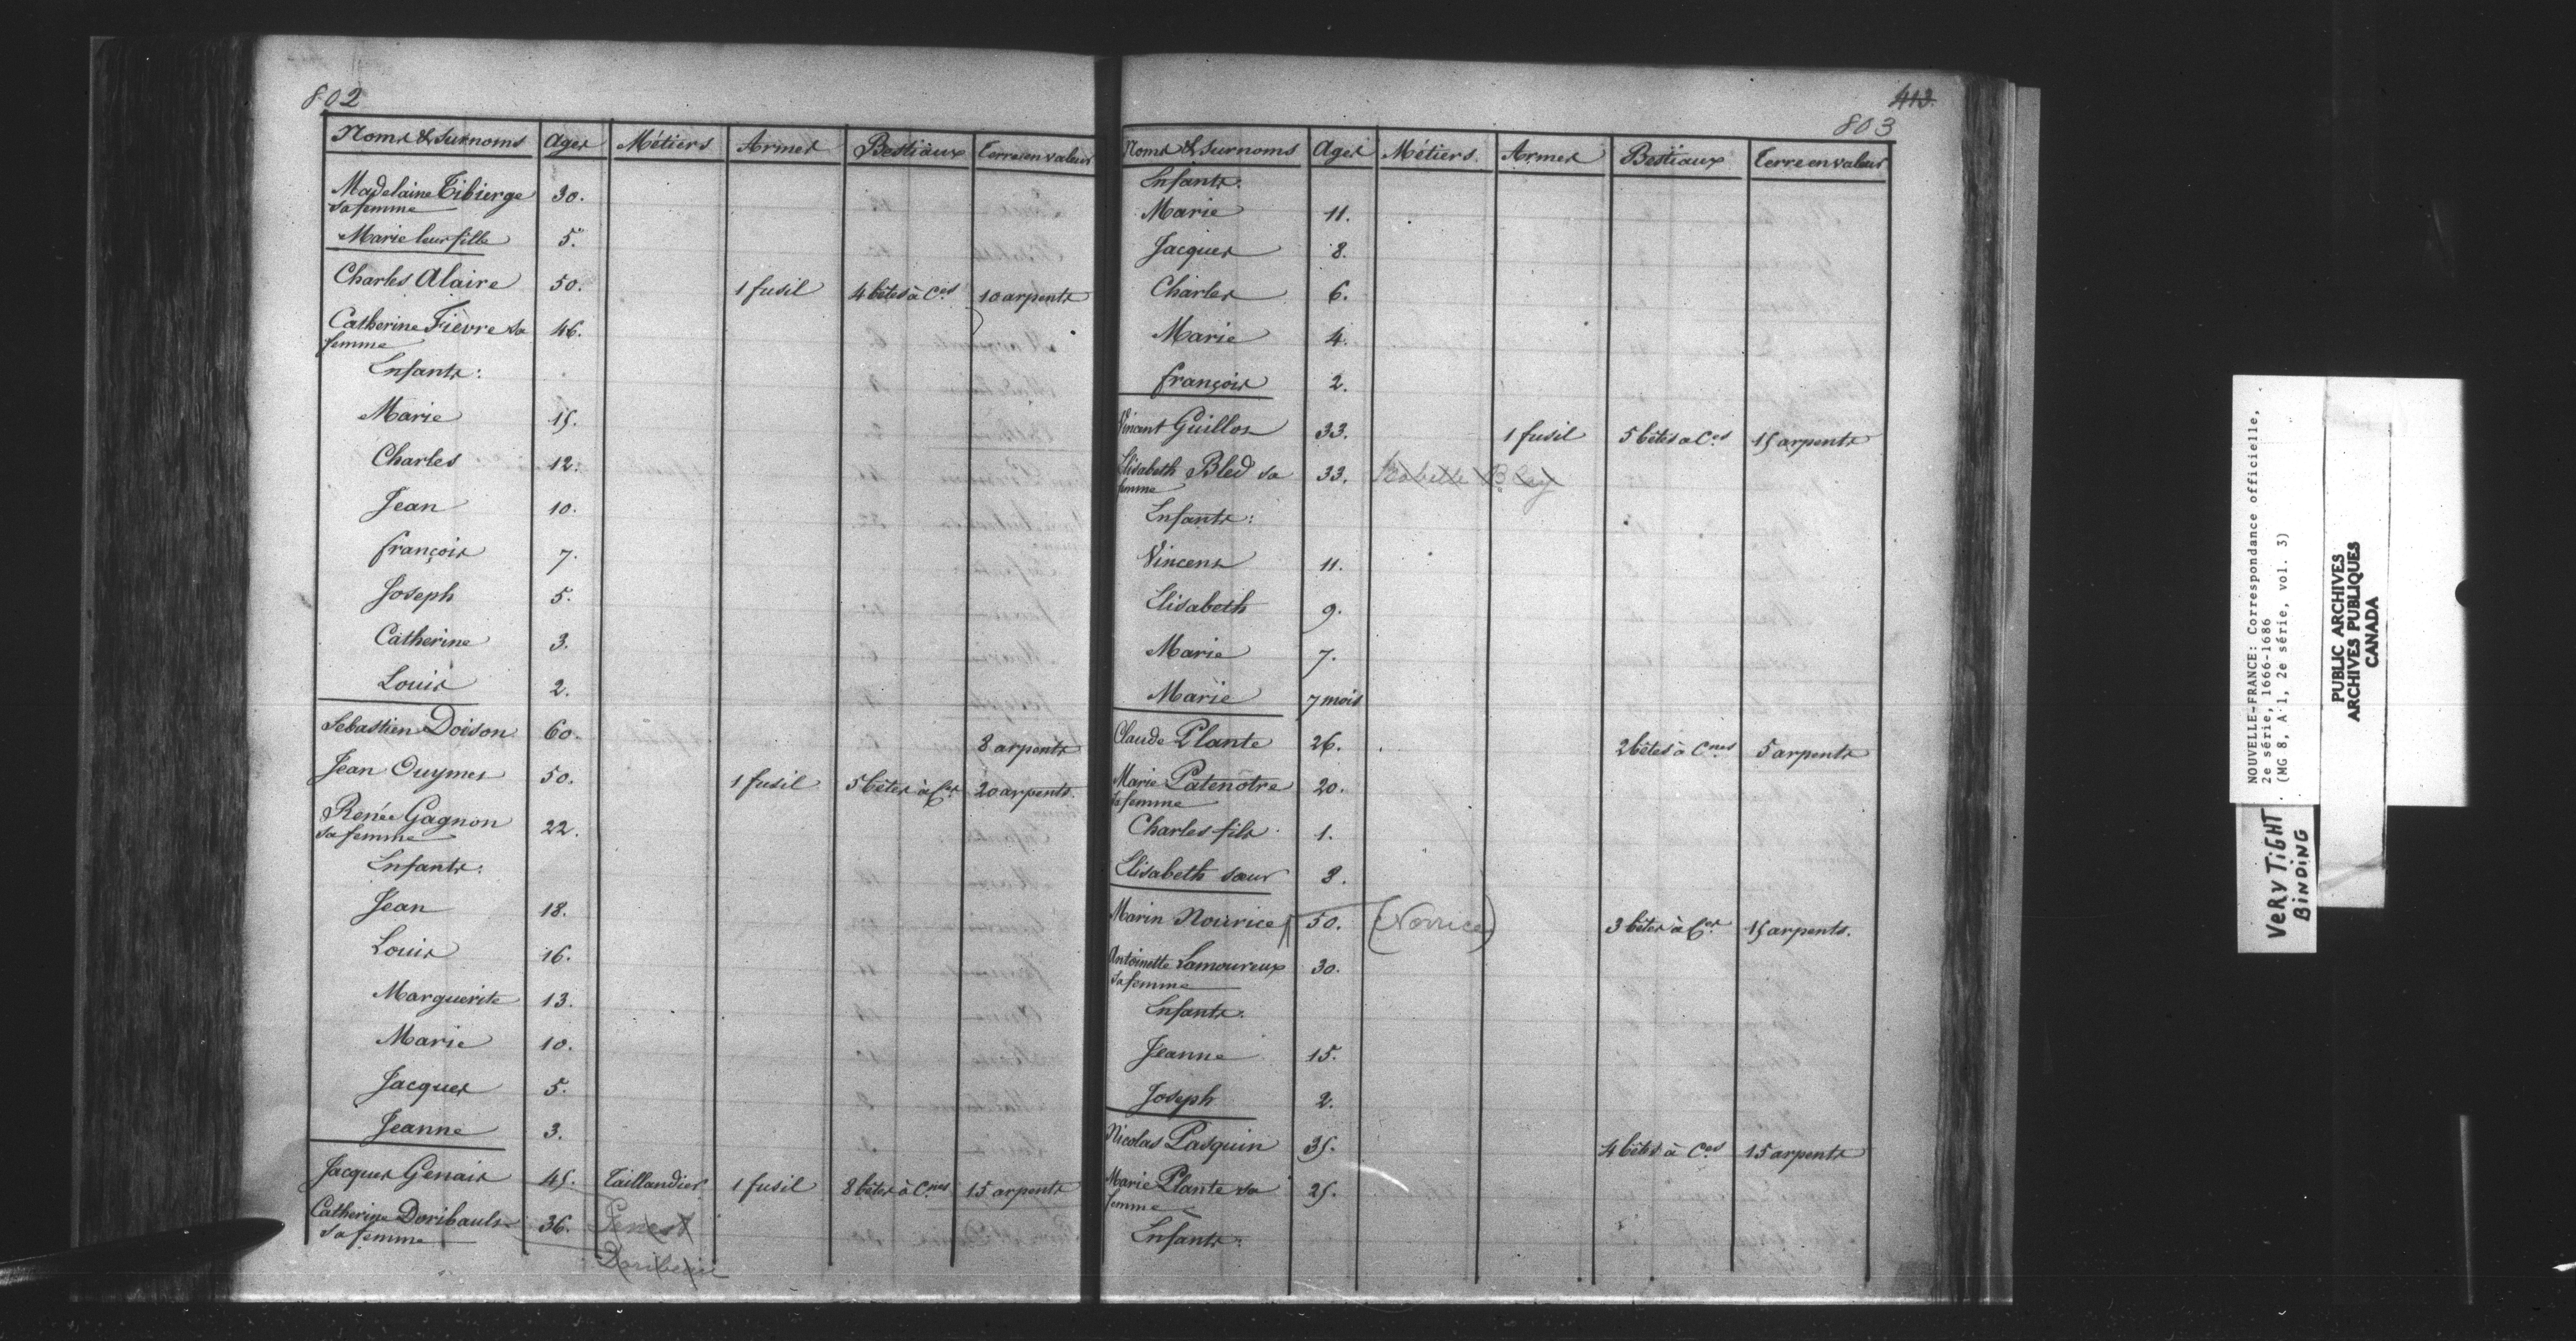 802
Noms & surnoms Ages Métiers Armes Bestiaux Terre en valeur
Madelaine Tibierge 30.
sa femme
Marie leur fille 5.
Charles Alaire 50. 1 fusil 4 bêtes à Ces 10 arpents
Catherine Fièvre sa 46.
femme
Enfants:
Marie 15.
Charles 12.
Jean 10.
François 7.
Joseph 5.
Catherine 3.
Louis 2.
Sebastien Doison 60. 8 arpents
Jean Ouymes 50. 1 fusil 5 bêtes à Ces 20 arpents.
Renée Gagnon 22.
sa femme
Enfants.
Jean 18.
Louis 16.
Marguerite 13.
Marie 10.
Jacques 5.
Jeanne 3.
Jacques Genais 45. Taillandier 1 fusil 8 bêtes à Cnes 15 arpents
Catherine Doribault 36. Genest
sa femme
413.
803
Noms & surnoms Ages Métiers. Armes Bestiaux Terre en valeur
Enfants.
Marie 11.
Jacques 8.
Charles 6.
Marie 4.
François 2.
Vincent Guillot 33. 1 fusil 5 bêtes a Ces 15 arpents
Elisabeth Bled sa 33. Isabelle Bley
femme
Enfants:
Vincent 11.
Elisabeth 9.
Marie 7.
Marie 7 mois
Claude Plante 26. 2 bêtes à Cnes 5 arpents
Marie Patenôtre 20.
sa femme
Charles fils 1.
Elisabeth sœur 8.
Marin Nourice 50. (Norrice) 3 bêtes à Ces 15 arpents.
Antoinette Lamoureux 30.
sa femme
Enfants.
Jeanne 15.
Joseph 2.
Nicolas Pasquin 35. 4 bêtes à Ces 15 arpents
Marie Plante sa 25.
femme
Enfants:
NOUVELLE-FRANCE: Correspondance officielle,
2e série, 1666-1686
(MG 8, A 1, 2e série, vol. 3)
VERY TIGHT
BINDING
PUBLIC ARCHIVES
ARCHIVES PUBLIQUES
CANADA